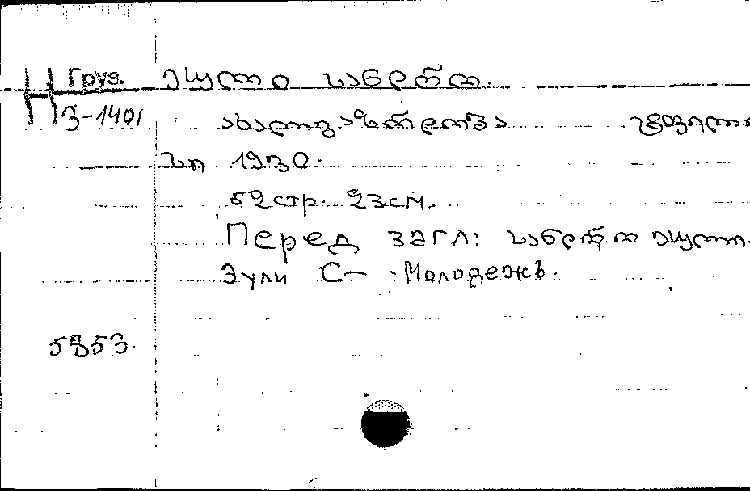 Груз. ეული სანდრო.
Н 3-1401 ახალგაზრდობა
1930.
52 стр. 23 см.
Перед загл: სანდრო ეული.
Эули С— Молодежь.
5353.